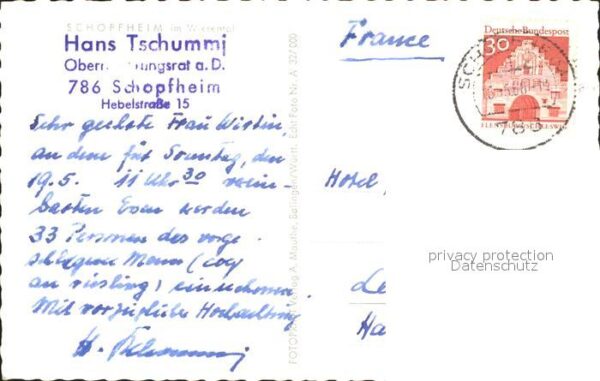 SCHOPFHEIM im Wiesental
Hans Tschummi
Oberr ungsrat a. D.
786 Schopfheim
Hebelstraße 15
Sehr geehrte Frau Wirtin,
an dem für Sonntag, den
19.5. 11 Uhr 30 verein-
barten Essen werden
33 Personen des vorge-
schlagenen Menu (coq
au riesling) einnehmen.
Mit vorzüglicher Hochachtung
H. Tschummi
FOTO Verlag A. Mauthe, Echt Foto Nr. A 32/000
France
Deutsche Bundespost
30
FLENSBURG/SCHLESWIG
SCHOPFHEIM
786
Hotel,
Le
Ha
privacy protection
Datenschutz